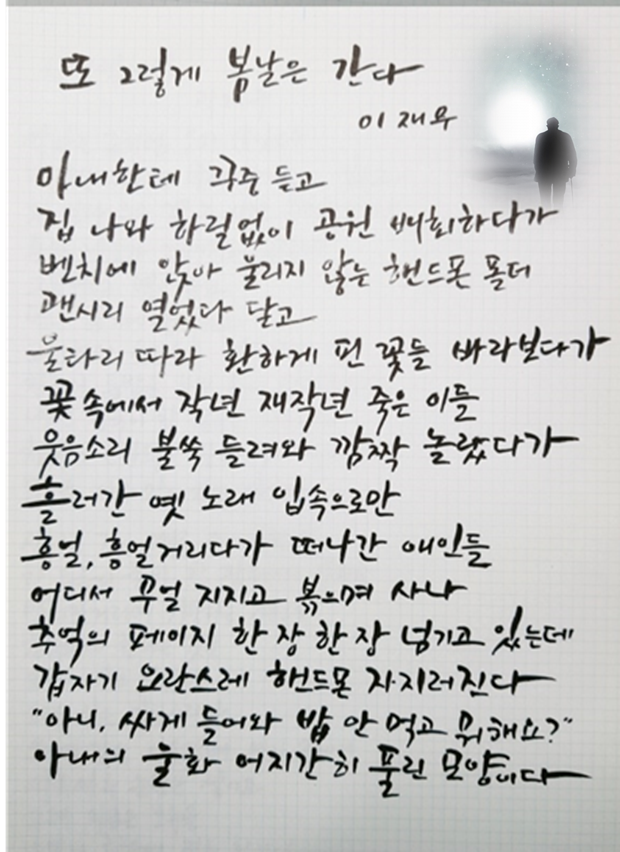 또 그렇게 봄날은 간다
이재무
아내한테 구중 듣고
집 나와 하릴없이 공원 배회하다가
벤치에 앉아 울리지 않는 핸드폰 폴더
괜시리 열었다 닫고
울타리 따라 환하게 핀 꽃들 바라보다가
꽃 속에서 작년 재작년 죽은 이들
웃음소리 불쑥 들려와 깜짝 놀랐다가
흘러간 옛 노래 입속으로만
흥얼, 흥얼거리다가 떠나간 애인들
어디서 무얼 지지고 볶으며 사나
추억의 페이지 한 장 한 장 넘기고 있는데
갑자기 요란스레 핸드폰 자지러진다
"아니, 싸게 들어와 밥 안 먹고 뭐해요?"
아내의 울화 어지간히 풀린 모양이다